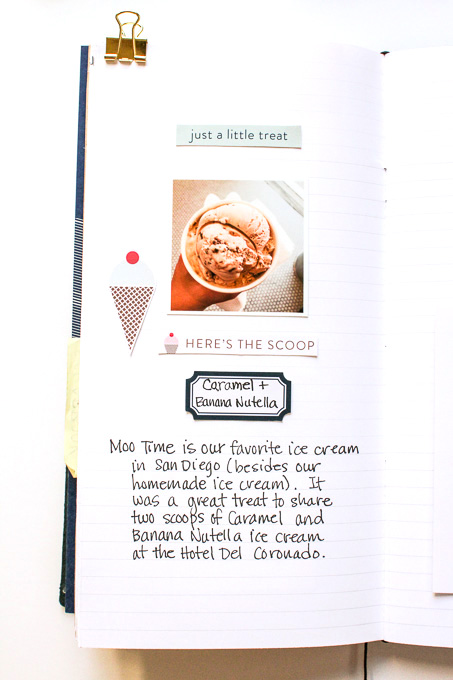 just a little treat
HERE'S THE SCOOP
Caramel +
Banana Nutella
Moo Time is our favorite ice cream
in San Diego (besides our
homemade ice cream). It
was a great treat to share
two scoops of Caramel and
Banana Nutella ice cream
at the Hotel Del Coronado.